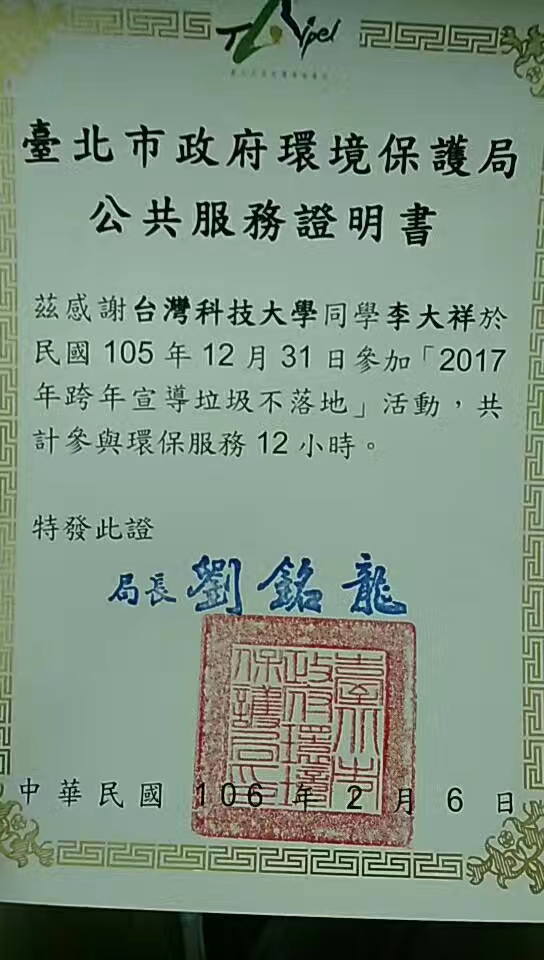 Taipei
臺北市政府環境保護局
公共服務證明書
茲感謝台灣科技大學同學李大祥於
民國 105 年 12 月 31 日參加「2017
年跨年宣導垃圾不落地」活動，共
計參與環保服務 12 小時。
特發此證
局長 劉銘龍
臺北市政府環境保護局印
中華民國 106 年 2 月 6 日